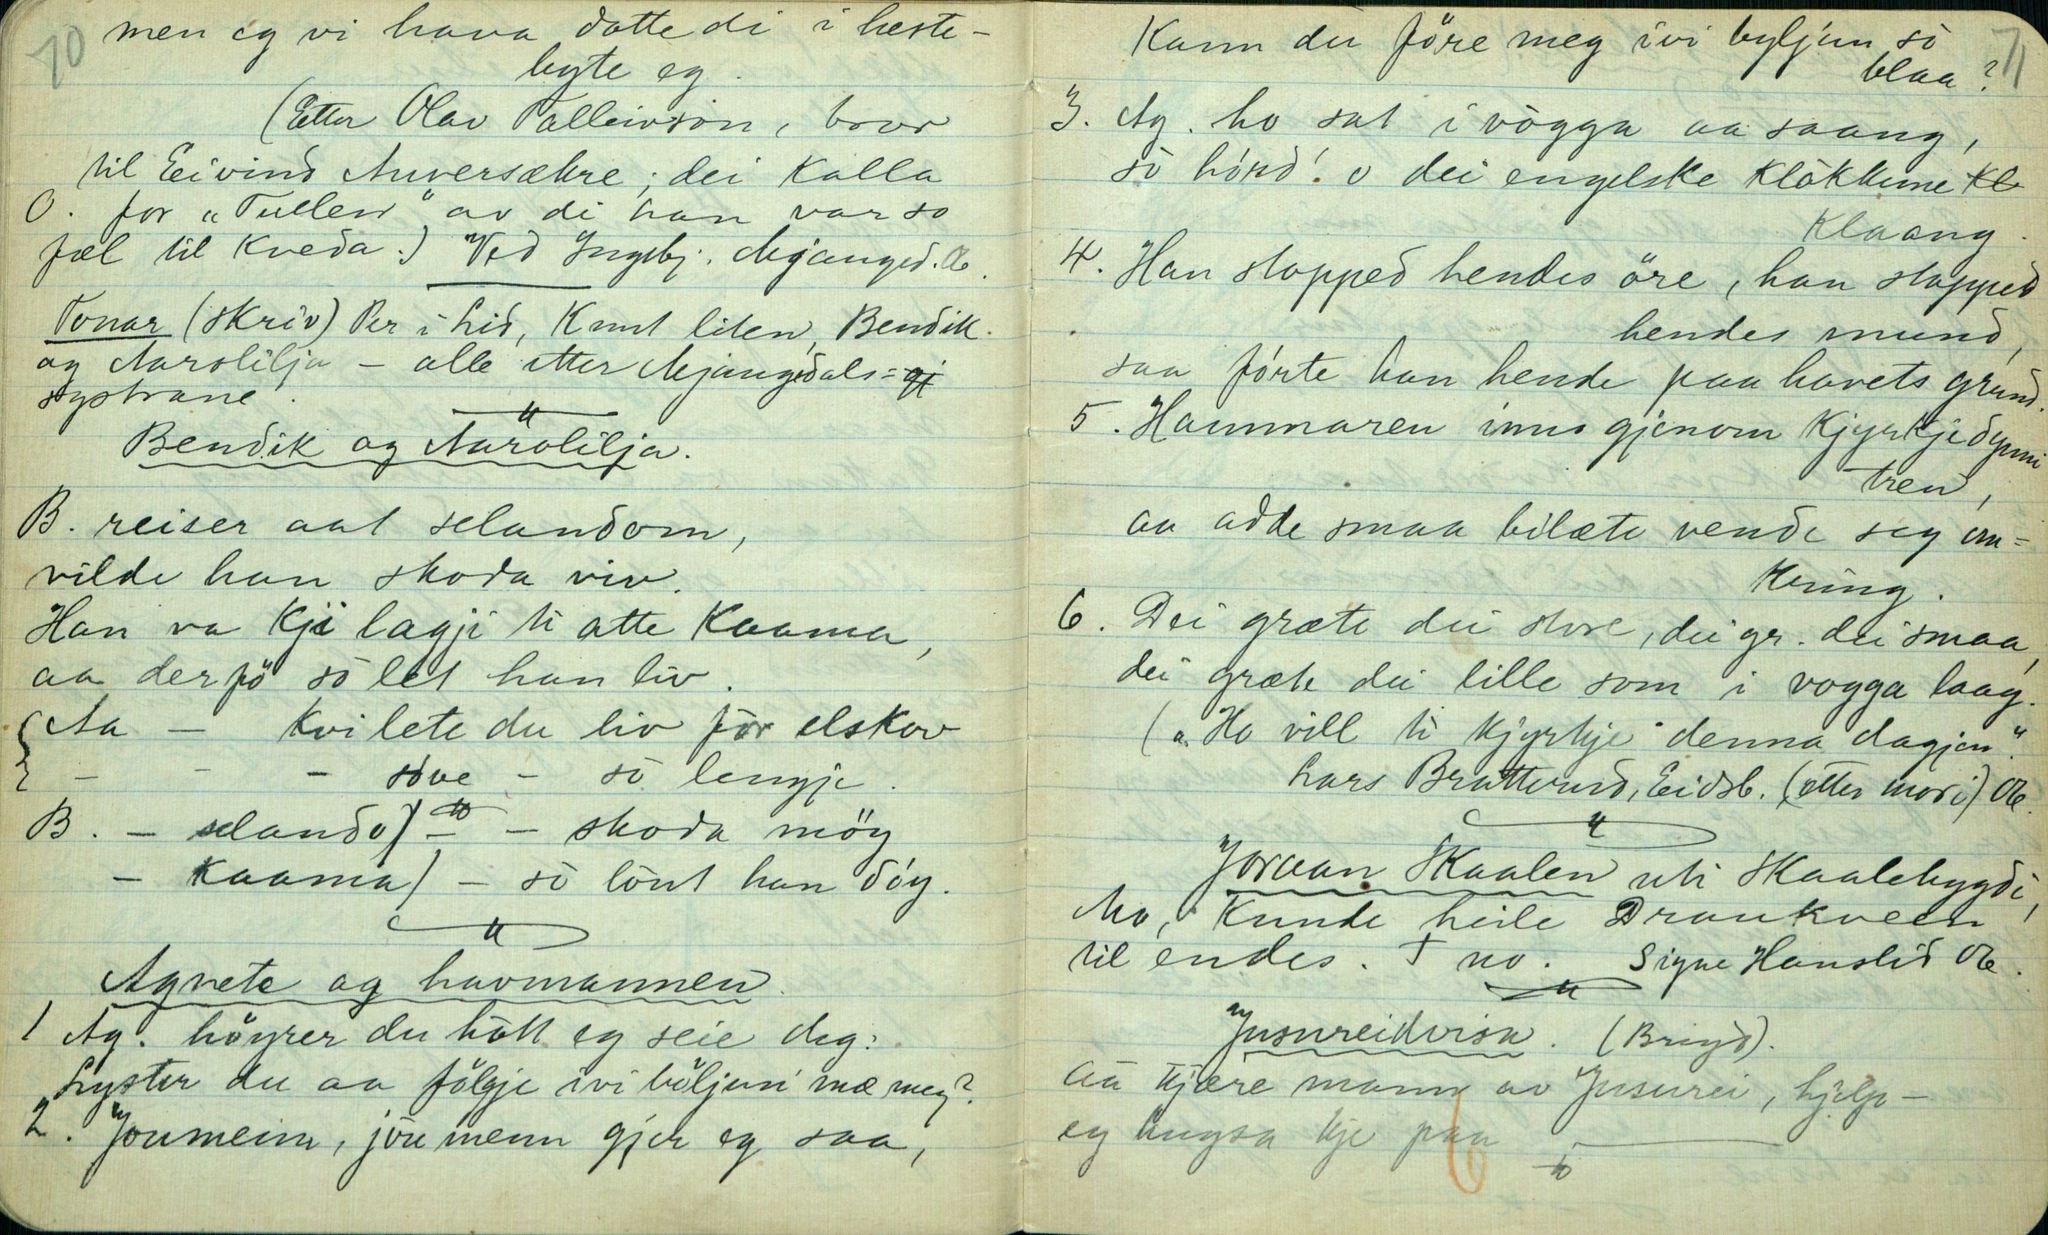 70
men eg vi hava datte di i heste-
byte eg.
(Etter Olav Talleivson, bror
til Eivind Anversækre; dei kalla
O. for "Tullen" av di han var so
fæl til kveda.) Ved Ingebj. Mjanged. Ae.
Tonar (skriv) Per i Lid, Knut liten, Bendik
og Aarolilja - alle etter Mjaugedals=
systrane.
Bendik og Aarolilja.
B. reiser aat selandom,
vilde han skoda viv.
Han va kji lagji ti atte kaama,
aa derfö so let han liv.
Aa - kvi lete du liv för elskov
- - - sove - so lengje.
B. - selando) - - skoda möy
- kaama) - so lönt han döy.
Agnete og havmannen.
1 Ag. höyrer du hött eg seie deg:
Lyster du aa fölgje ivi böljun mæ meg?
2. Joumenn, jou menn gjer eg saa,
71
Kann du före meg ivi byljun so
blaa?
3. Ag. ho sat i vögga aa saang,
so hörd' o dei engelske klokkune
klaang.
4. Han stopped hendes öre, han stopped
hendes mund,
saa förte han hende paa havets grund.
5. Hammaren inn gjenom kjyrkjedynni
tren,
aa adde smaa bilæte vende seg um=
kring.
6. Dei græte dei store, dei gr. dei smaa,
dei græte dei lille som i vogga laag.
("Ho vill ti kjyrkje denna dagjen".
Lars Bratterud, Eidsb. (etter mori) Ae.
Joraan Skaalen uti Skaalebygdi,
Mo, kunde heile Draunkveen
til endes. † no. Signe Hanslid Ae.
Jusureidvisa. (Brigd).
Aa kjære mann av Jusurei, hjelp -
eg kje paa